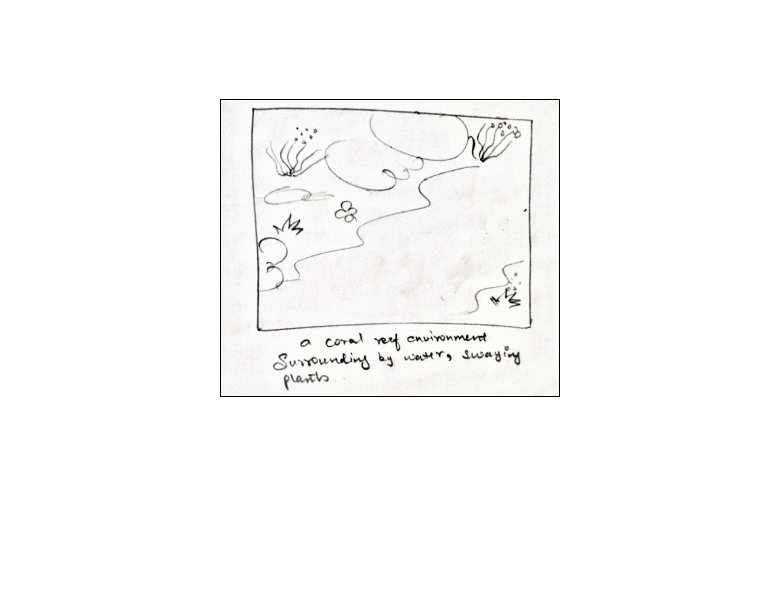 a coral reef environment
Surrounding by water, swaying
plants.